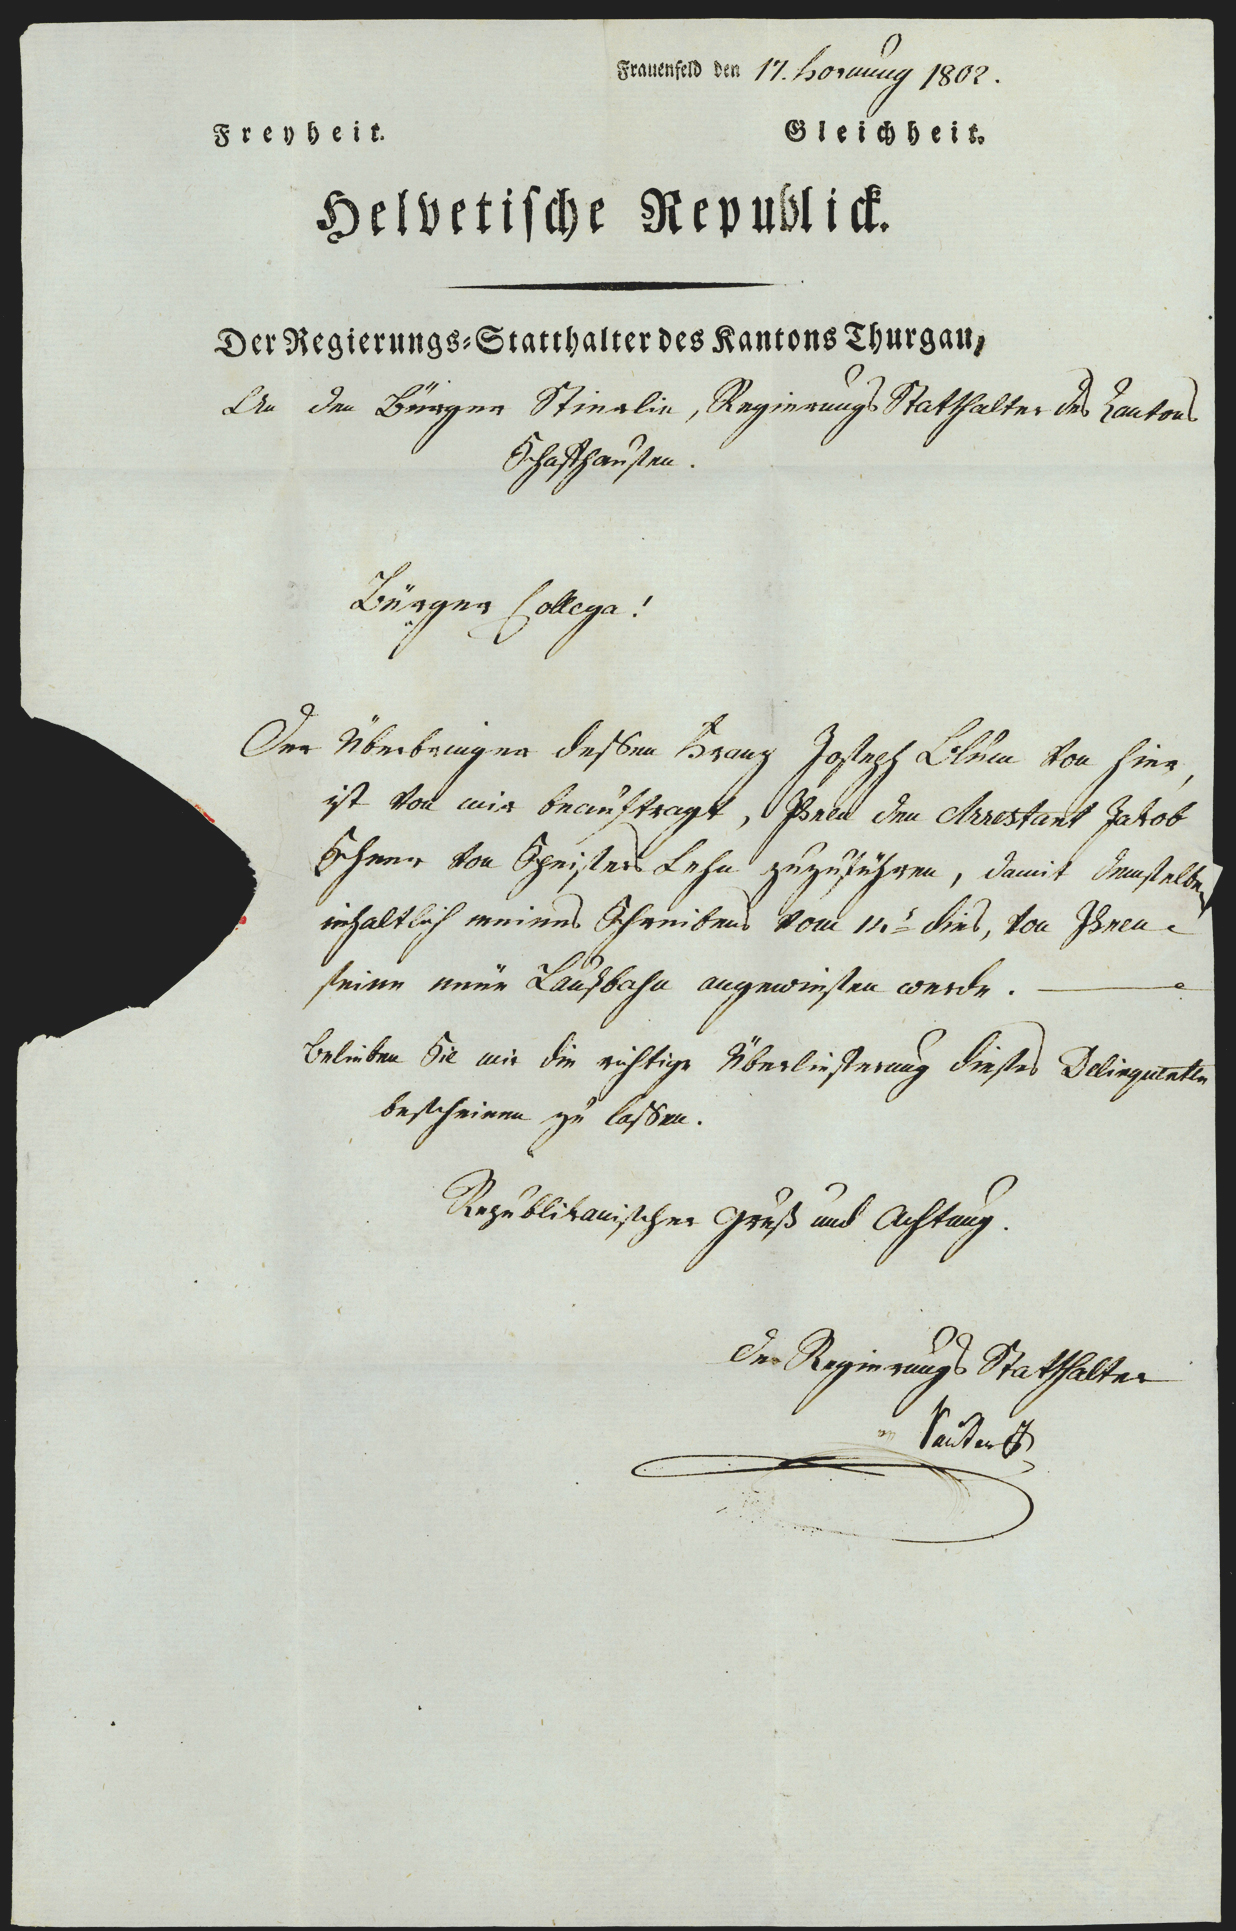 Frauenfeld den 17. Hornung 1802.
Freyheit. Gleichheit.
Helvetische Republick.
Der Regierungs-Statthalter des Kantons Thurgau,
An den Bürger Stierlin, Regierungs Statthalter des Kantons
Schaffhausen.
Bürger Collega!
Der Überbringer dessen Franz Joseph Blum von hier,
ist von mir beauftragt, Ihnen den Arrestant Jakob
Scherr von Speisers Lehn zuzuführen, damit demselben
inhaltlich meines Schreibens vom 14.t dies, von Ihnen
seine neue Laufbahn angewiesen werde.
Belieben Sie mir die richtige Überlieferung dieses Delinquenten
bescheinen zu lassen.
Republikanischer Gruß und Achtung.
der Regierungs Statthalter
Sauter